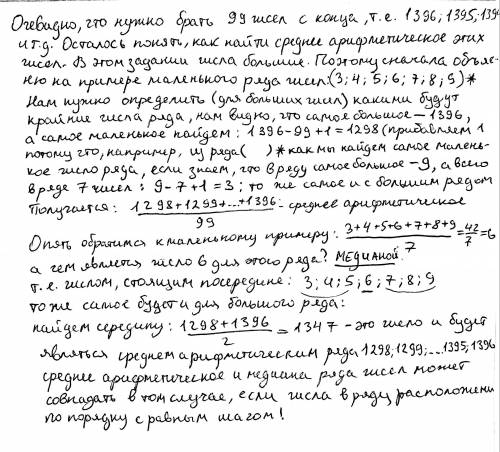 Очевидно, что нужно брать 99 чисел с конца, т.е. 1396; 1395; 1394
и т.д. Осталось понять, как найти среднее арифметическое этих
чисел. В этом задании числа большие. Поэтому сначала объяс-
ню на примере маленького ряда чисел: (3; 4; 5; 6; 7; 8; 9)*
Нам нужно определить (для больших чисел) какими будут
крайние числа ряда, нам видно, что самое большое – 1396,
а самое маленькое найдем: 1396-99+1=1298 (прибавляем 1
потому что, например, из ряда ( )* как мы найдем самое малень-
кое число ряда, если знаем, что в ряду самое большое -9, а всего
в ряде 7 чисел: 9-7+1=3; то же самое и с большим рядом
Получается: (1298+1299+...+1396)/99 - среднее арифметическое
Опять обратимся к маленькому примеру: (3+4+5+6+7+8+9)/7 = 42/7 = 6
а чем является число 6 для этого ряда? МЕДИАНОЙ.
т.е. числом, стоящим посередине: 3; 4; 5; 6; 7; 8; 9
то же самое будет и для большого ряда:
найдем середину: (1298+1396)/2 = 1347 - это число и будет
являться средним арифметическим ряда 1298; 1299; ... 1395; 1396
среднее арифметическое и медиана ряда чисел может
совпадать в том случае, если числа в ряду расположены
по порядку с равным шагом!